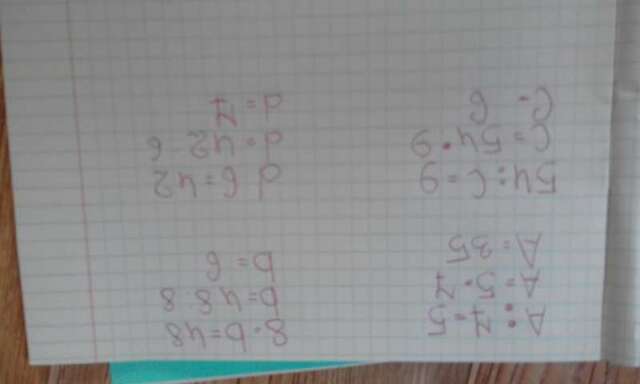 A : 7 = 5
A = 5 · 7
A = 35
8 · b = 48
b = 48 8
b = 6
54 : C = 9
C = 54 · 9
C = 6
d 6 = 42
d = 42 6
d = 7